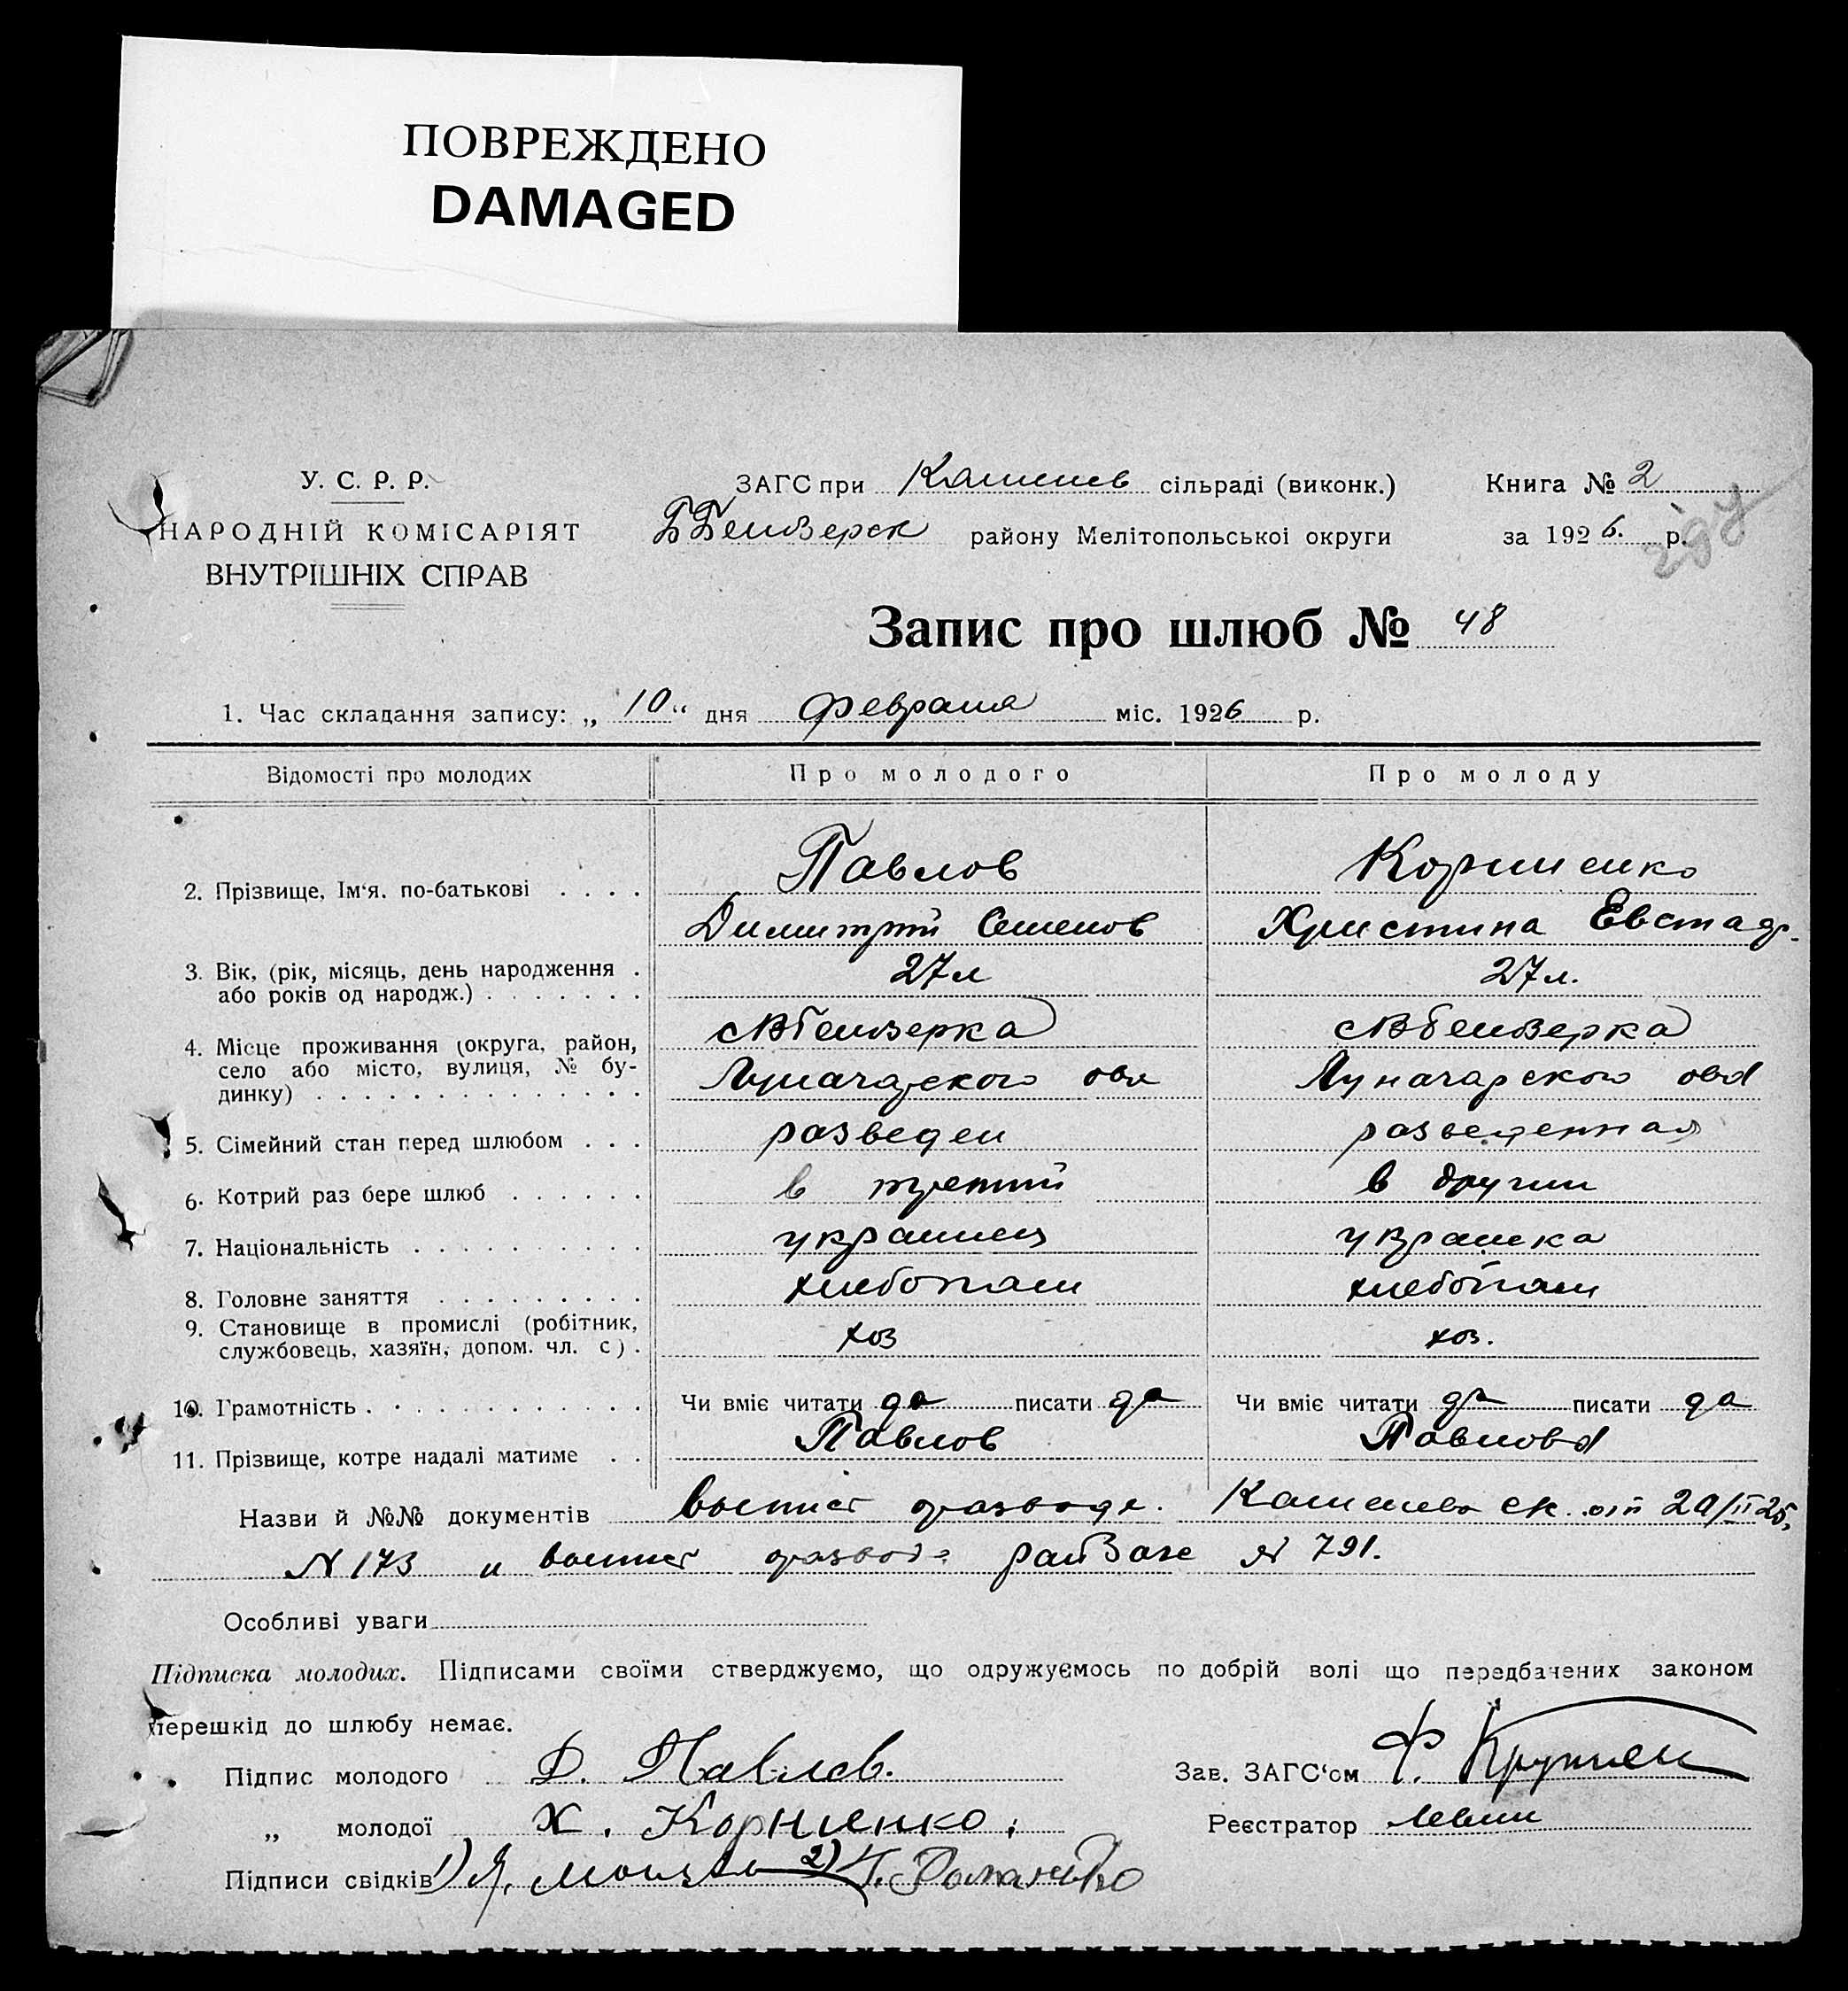 ПОВРЕЖДЕНО
DAMAGED
У. С. Р. Р.
НАРОДНІЙ КОМІСАРІЯТ
ВНУТРІШНІХ СПРАВ
ЗАГС при сільраді (виконк.)
району Мелітопольської округи
Книга № 2
за 1926. р.
Запис про шлюб № 48
1. Час складання запису: „ 10 “ дня февраля міс. 1926 р.
Відомості про молодих Про молодого Про молоду
Павлов Корниенко
2. Прізвище, Ім‘я, по-батькові . . . .
Димитрий Семенов Христина Евстаф.
3. Вік, (рік, місяць, день народження . 27 л 27 л.
або років од народж.) . . . . . . .
4. Місце проживання (округа, район,
село або місто, вулиця, № бу-
динку) . . . . . . . . . . . . . .
Луначарского Луначарского
5. Сімейний стан перед шлюбом . . . разведен разведенная
6. Котрий раз бере шлюб . . . . . . в третий в другий
7. Національність . . . . . . . . . . украинец украинка
8. Головне заняття . . . . . . . . . хлебопаш хлебопаш
9. Становище в промислі (робітник, хоз хоз.
службовець, хазяїн, допом. чл. с) .
10. Грамотність . . . . . . . . . . . Чи вміє читати да писати да Чи вміє читати да писати да
Павлов Павлова
11. Прізвище, котре надалі матиме . .
Назви й №№ документів выпись о разводе
N 173 и выпись о разводе № 791.
Особливі уваги
Підписка молодих. Підписами своїми стверджуємо, що одружуємось по добрій волі що передбачених законом
перешкід до шлюбу немає.
Підпис молодого Д. Павлов. Зав. ЗАГС‘ом Ф.
„ молодої Х. Корниенко. Реєстратор
Підписи свідків 1) 2)